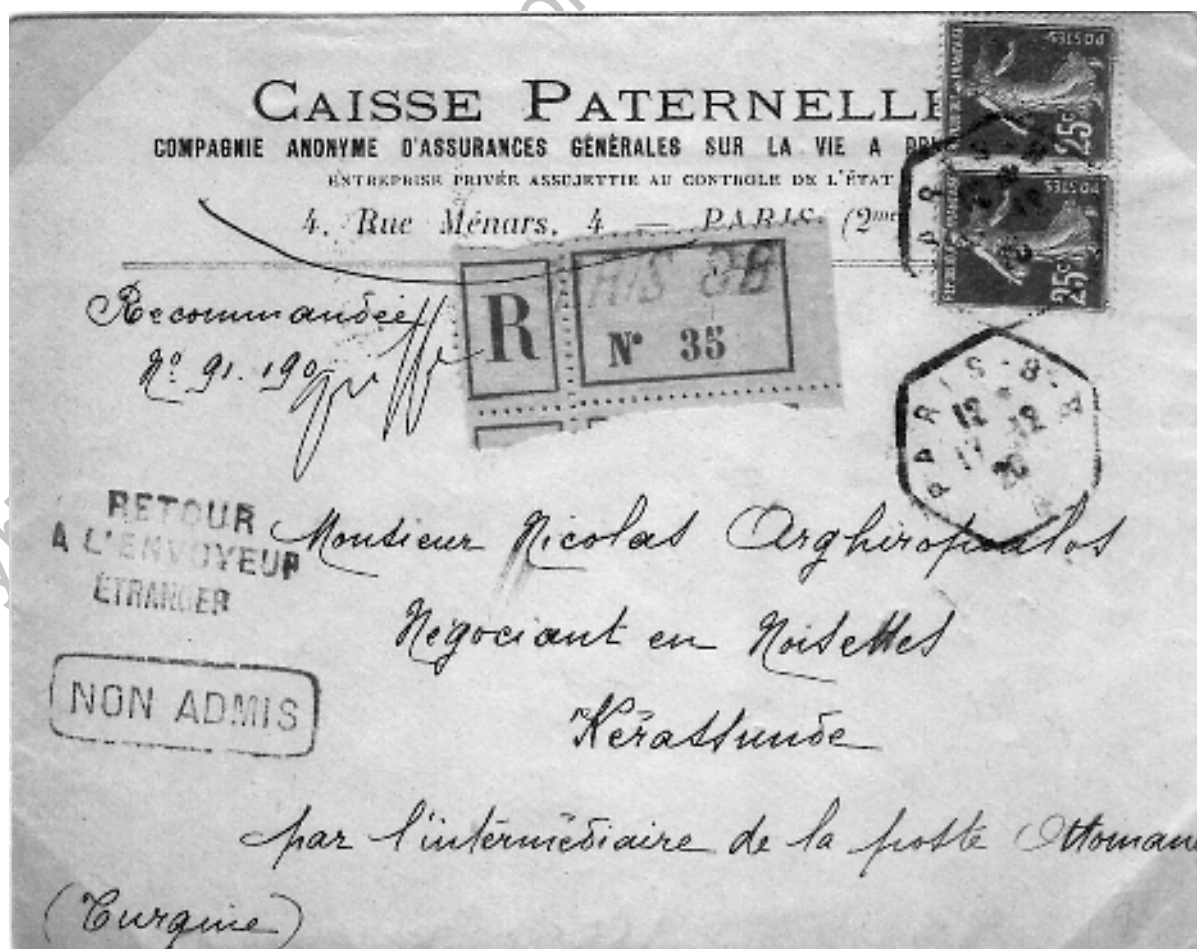 CAISSE PATERNELLE
COMPAGNIE ANONYME D'ASSURANCES GÉNÉRALES SUR LA VIE A
ENTREPRISE PRIVÉE ASSUJETTIE AU CONTROLE DE L'ÉTAT
4, Rue Ménars, 4 — PARIS (2me
POSTES
25c
POSTES
25c
Recommandée
No 91.190
R
No 35
PARIS-8
12
17 12
20
RETOUR
A L'ENVOYEUR
ÉTRANGER
Monsieur Nicolas Arghiropoulos
Négociant en Noisettes
NON ADMIS
Kérassunde
par l'intérmédiaire de la poste Ottomane
(Turquie)